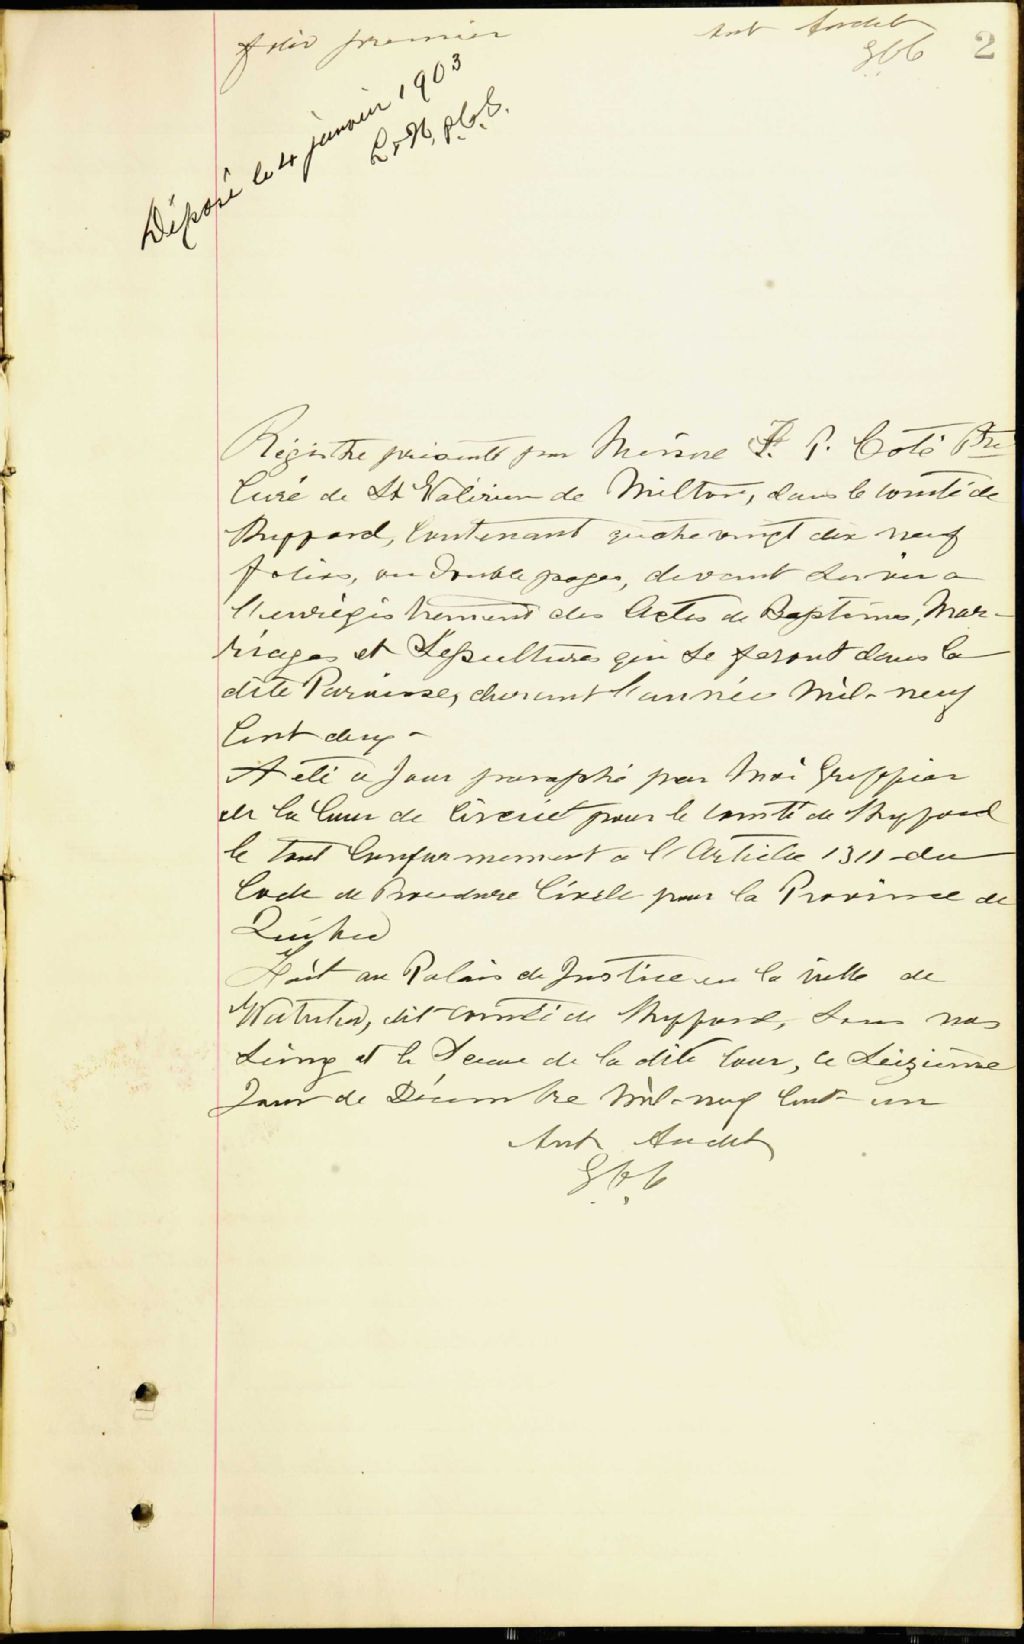 folio premier
Ant Audet
G.C.C
2
Déposé le 4 janvier 1903
L. & N, p.C.S.
Régistre présenté par Messire F. P. Coté Ptre
Curé de St Valérien de Milton, dans le comté de
Shefford, Contenant quatre vingt dix neuf
folios, ou double pages, devant servir a
l'enrégistrement des Actes de Baptêmes, Mar-
riages et Sépultures qui se feront dans la
dite Paroisse, durant l'année Mil-neuf
Cent deux -
A été ce Jour paraphé par Moi Greffier
de la Cour de Circuit pour le comté de Shefford
le tout Conformement a l'Article 1311 du
Code de Procedure Civile pour la Province de
Québec
Fait au Palais de Justice en la ville de
Waterloo, dit comté de Shefford, sous nos
Seing et le Sceau de la dite Cour, ce Seizième
Jour de Décembre Mil-neuf Cent un
Ant Audet
G.C.C